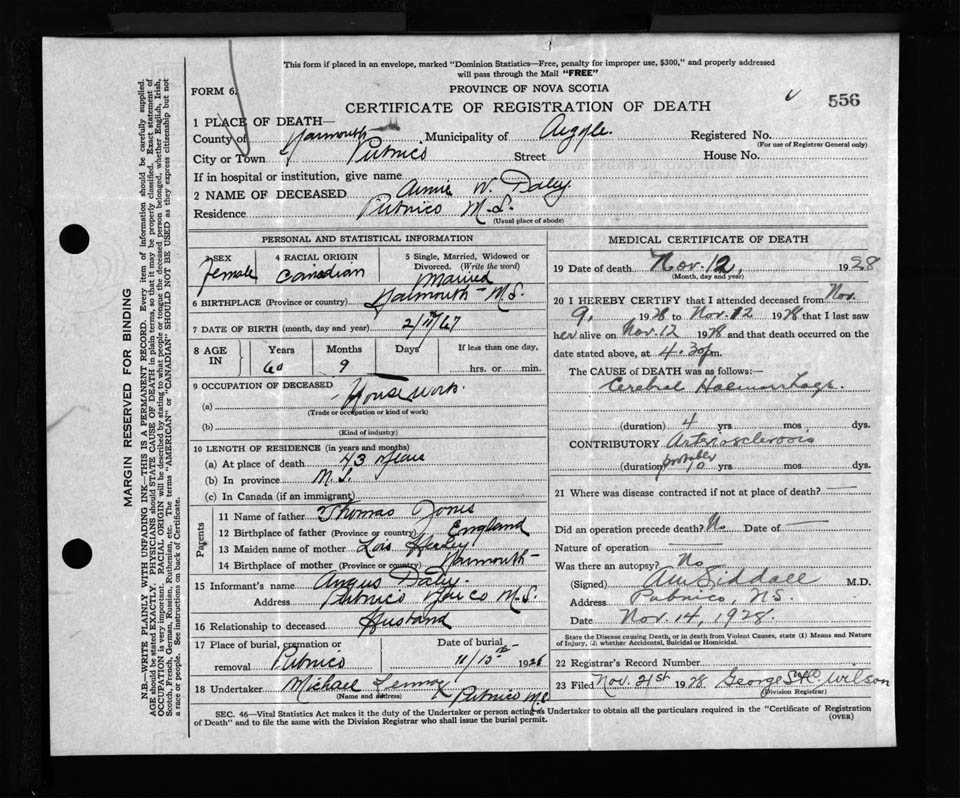 This form if placed in an envelope, marked "Dominion Statistics—Free, penalty for improper use, $300," and properly addressed
will pass through the Mail "FREE"
FORM 6.
PROVINCE OF NOVA SCOTIA
CERTIFICATE OF REGISTRATION OF DEATH
556
1 PLACE OF DEATH—
County of Yarmouth Municipality of Argyle. Registered No.
(For use of Registrar General only)
City or Town Pubnico Street House No.
If in hospital or institution, give name
2 NAME OF DECEASED Annie W. Daley.
Residence Pubnico N.S.
(Usual place of abode)
PERSONAL AND STATISTICAL INFORMATION
3 SEX 4 RACIAL ORIGIN 5 Single, Married, Widowed or
Divorced. (Write the word)
Female Canadian Married
6 BIRTHPLACE (Province or country) Yarmouth - N.S.
7 DATE OF BIRTH (month, day and year) 2/11/67
8 AGE IN Years Months Days If less than one day,
60 9 hrs. or min.
9 OCCUPATION OF DECEASED
(a) Housework.
(Trade or occupation or kind of work)
(b)
(Kind of industry)
10 LENGTH OF RESIDENCE (in years and months)
(a) At place of death 43 years
(b) In province N.S.
(c) In Canada (if an immigrant)
Parents
11 Name of father Thomas Jones
12 Birthplace of father (Province or country) England
13 Maiden name of mother Lois
14 Birthplace of mother (Province or country) Yarmouth -
15 Informant's name Angus Daley.
Address Pubnico N.S.
16 Relationship to deceased Husband
17 Place of burial, cremation or Date of burial
removal Pubnico 11/15th 1928
18 Undertaker Michael
(Name and address) Pubnico
MEDICAL CERTIFICATE OF DEATH
19 Date of death Nov. 12, 1928
(Month, day and year)
20 I HEREBY CERTIFY that I attended deceased from Nov.
9, 1928 to Nov. 12 1928 that I last saw
her alive on Nov. 12 1928 and that death occurred on the
date stated above, at 4.30 pm.
The CAUSE of DEATH was as follows:—
Cerebral Haemorrhage.
(duration) 4 yrs. mos. dys.
CONTRIBUTORY Arteriosclerosis
(duration) probably 10 yrs. mos. dys.
21 Where was disease contracted if not at place of death? —
Did an operation precede death? No Date of —
Nature of operation —
Was there an autopsy? No
(Signed) Siddall M.D.
Address Pubnico, N.S.
Date Nov. 14, 1928.
State the Disease causing Death, or in death from Violent Causes, state (1) Means and Nature
of Injury, (2) whether Accidental, Suicidal or Homicidal.
22 Registrar's Record Number
23 Filed Nov. 21st 1928 George Wilson
(Division Registrar)
SEC. 46—Vital Statistics Act makes it the duty of the Undertaker or person acting as Undertaker to obtain all the particulars required in the "Certificate of Registration
of Death" and to file the same with the Division Registrar who shall issue the burial permit.
(OVER)
MARGIN RESERVED FOR BINDING
N.B.—WRITE PLAINLY WITH UNFADING INK—THIS IS A PERMANENT RECORD. Every item of information should be carefully supplied.
AGE should be stated EXACTLY. PHYSICIANS should STATE CAUSE OF DEATH in plain terms, so that it may be properly classified. Exact statement of
OCCUPATION is very important. RACIAL ORIGIN will be described by stating to what people or tongue the deceased person belonged, whether English, Irish,
Scotch, French, German, Russian, Ruthenian, etc. The terms "AMERICAN" or "CANADIAN" SHOULD NOT BE USED as they express citizenship but not
a race or people. See instructions on back of Certificate.